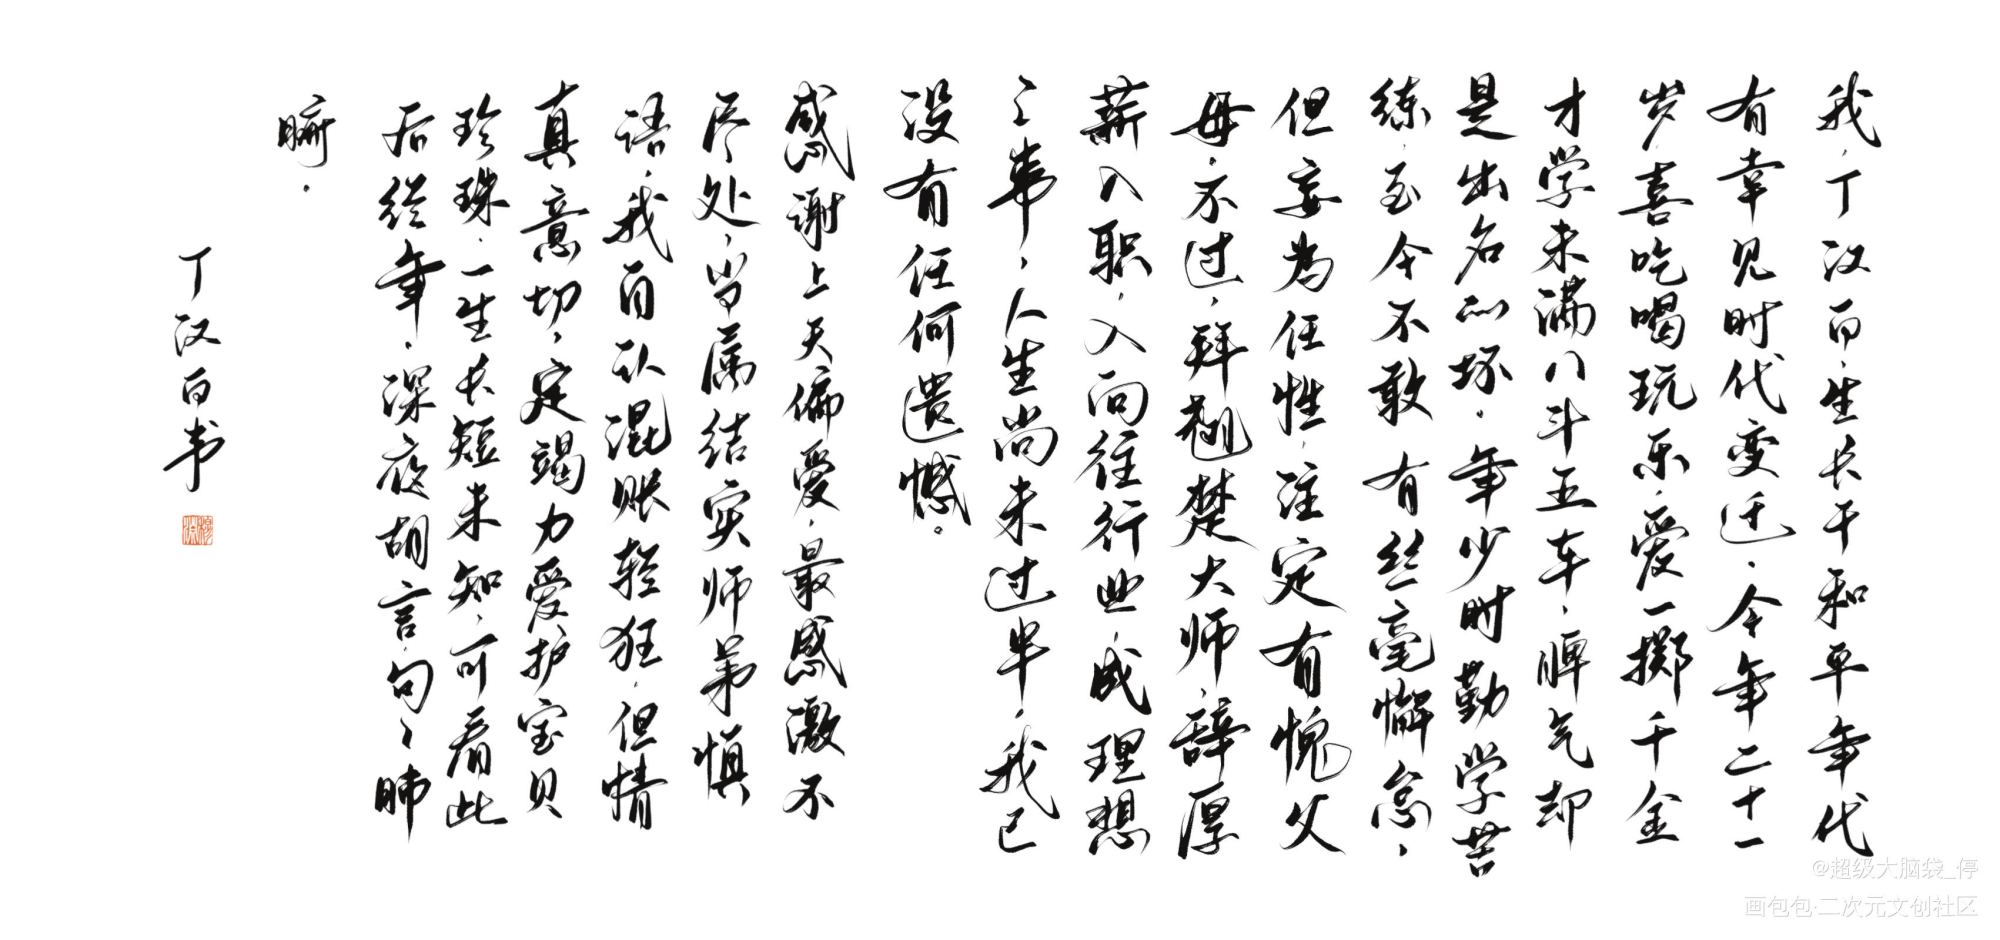 我，丁汉白，生长于和平年代
有幸见时代变迁，今年二十一
岁，喜吃喝玩乐，爱一掷千金
才学未满八斗五车，脾气却
是出名的坏。年少时勤学苦
练，至今不敢有丝毫懈怠，
但妄为任性，注定有愧父
母。不过，拜楚大师，辞厚
薪入职，入向往行业，成理想
之事，人生尚未过半，我已
没有任何遗憾。
感谢上天偏爱，最感激不
尽处，当属结实师弟慎
语，我自认混账轻狂，但情
真意切，定竭力爱护宝贝
珍珠。一生长短未知，可看此
后经年。深夜胡言，句句肺
腑。
丁汉白书
@超级大脑袋_停
画包包·二次元文创社区